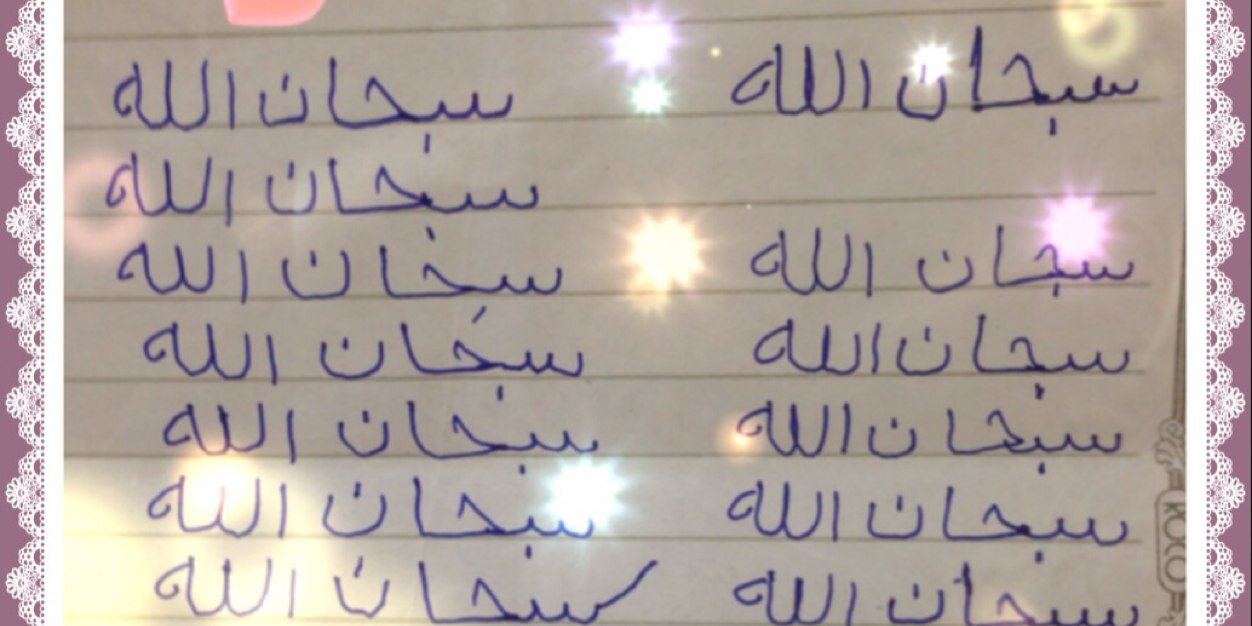 سبحان الله سبحان الله
سبحان الله
سبحان الله سبحان الله
سبحان الله سبحان الله
سبحان الله سبحان الله
سبحان الله سبحان الله
سبحان الله سبحان الله